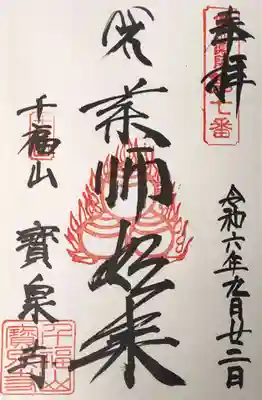 奉拝
七番
令和六年九月廿二日
薬師如来
千福山
寳泉寺
千福山
寳泉寺